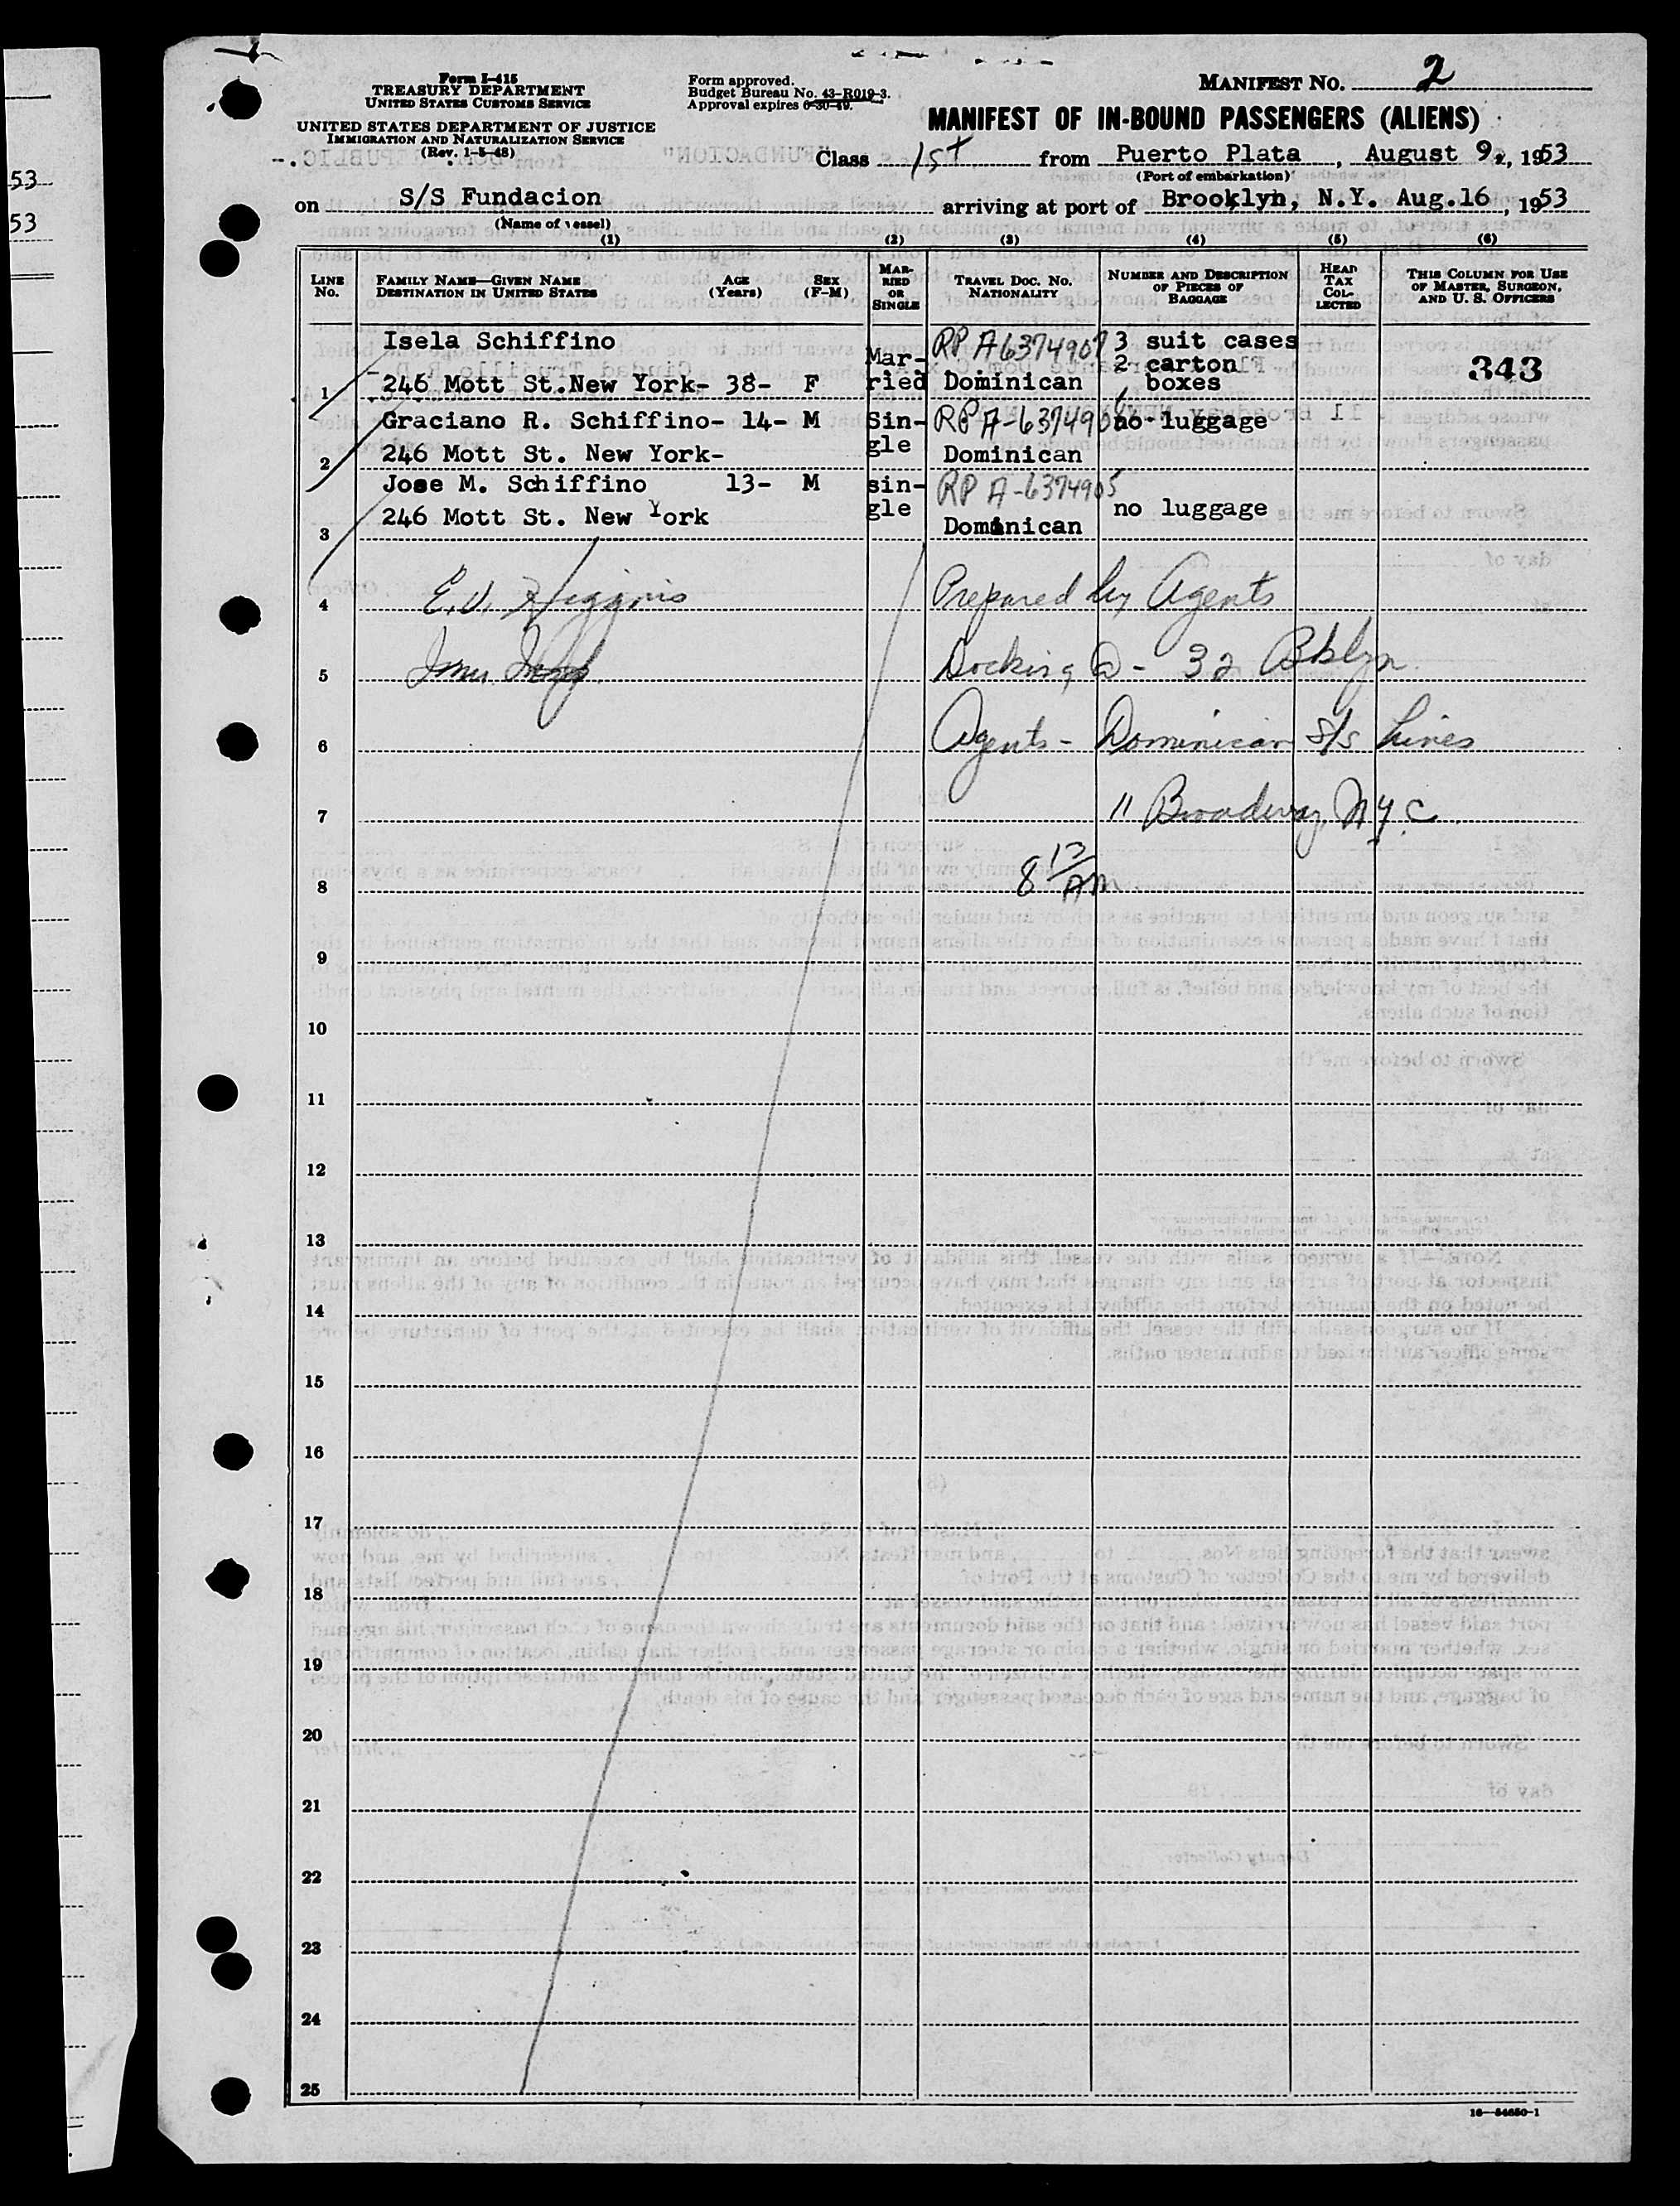 53
53
Form I-415
TREASURY DEPARTMENT
UNITED STATES CUSTOMS SERVICE
UNITED STATES DEPARTMENT OF JUSTICE
IMMIGRATION AND NATURALIZATION SERVICE
(Rev. 1-5-48)
Form approved.
Budget Bureau No. 43-R019-3.
Approval expires 6-30-49.
MANIFEST NO. 2
MANIFEST OF IN-BOUND PASSENGERS (ALIENS)
Class 1st from Puerto Plata, August 9, 1953
(Port of embarkation)
on S/S Fundacion arriving at port of Brooklyn, N.Y. Aug.16, 1953
(Name of vessel)
(1) (2) (3) (4) (5) (6)
LINE NO.
FAMILY NAME—GIVEN NAME
DESTINATION IN UNITED STATES
AGE (Years)
SEX (F-M)
MARRIED OR SINGLE
TRAVEL DOC. NO.
NATIONALITY
NUMBER AND DESCRIPTION OF PIECES OF BAGGAGE
HEAD TAX COLLECTED
THIS COLUMN FOR USE OF MASTER, SURGEON, AND U. S. OFFICERS
Isela Schiffino Mar- RP A6374907 3 suit cases
2 carton 343
1 246 Mott St.New York- 38- F ried Dominican boxes
Graciano R. Schiffino- 14- M Sin- RP A-637490 no luggage
2 246 Mott St. New York- gle Dominican
Jose M. Schiffino 13- M sin- RP A-6374905
246 Mott St. New York gle no luggage
3 Dominican
4 E.V. Higgins Prepared by Agents
5 Docking @ - 32 Bklyn.
6 Agents - Dominican S/S Lines
7 11 Broadway, N.Y.C.
8 8 AM
9
10
11
12
13
14
15
16
17
18
19
20
21
22
23
24
25
16—54650-1